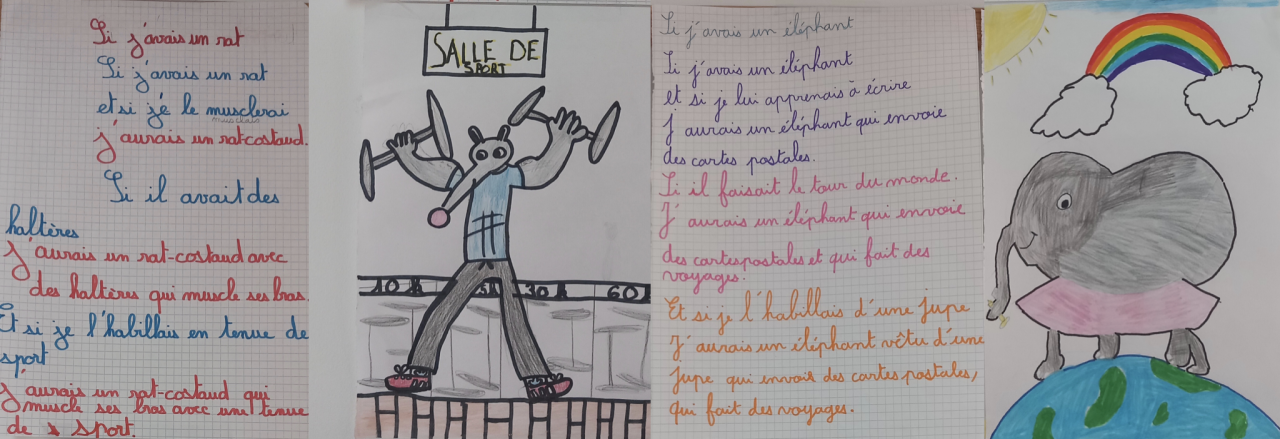 Si j'avais un rat
Si j'avais un rat
et si je le musclerai
musclais
j'aurais un rat-costaud.
Si il avait des
haltères
J'aurais un rat-costaud avec
des haltères qui muscle ses bras.
Et si je l'habillais en tenue de
sport
J'aurais un rat-costaud qui
muscle ses bras avec une tenue
de sport.
SALLE DE
SPORT
10 30 60
Si j'avais un éléphant
Si j'avais un éléphant
et si je lui apprenais à écrire
j'aurais un éléphant qui envoie
des cartes postales.
Si il faisait le tour du monde.
J'aurais un éléphant qui envoie
des cartes postales et qui fait des
voyages.
Et si je l'habillais d'une jupe
J'aurais un éléphant vêtu d'une
jupe qui envoie des cartes postales,
qui fait des voyages.